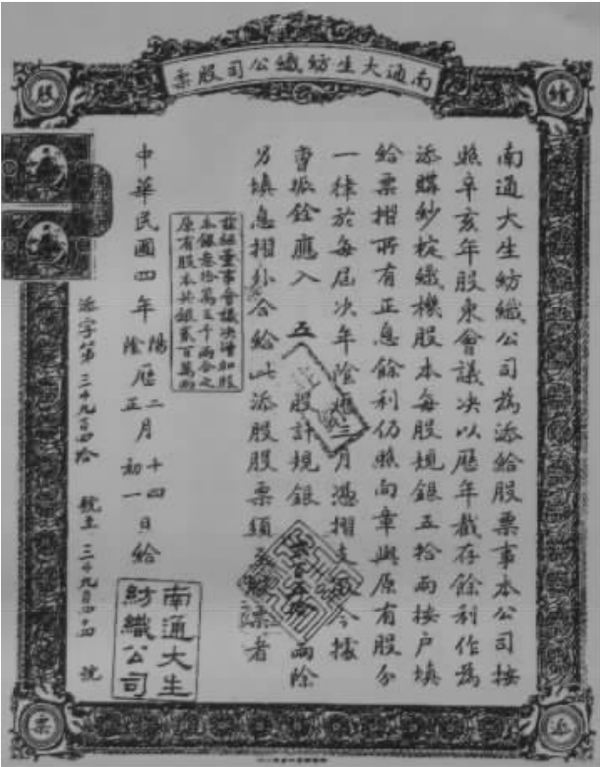 南通大生紡織公司股票
股
票
南通大生紡織公司為添給股票事本公司按
照辛亥年股東會議決以歷年截存餘利作為
添購紗椗織機股本每股規銀五拾兩按戶填
給票摺所有正息餘利仍照向章與原有股分
一律於每屆次年陰曆三月憑摺支取今據
曹振銓應入 五 股計規銀 貳百五拾 兩除
另填息摺外合給此添股股票須至股票者
茲經董事會議決增加股
本銀叁拾萬五千兩合之
原有股本共銀貳百萬兩
中華民國四年陽陰曆二正月十四初一日給
添字第三千九百四拾 號至 三千九百四十四 號
南通大生
紡織公司